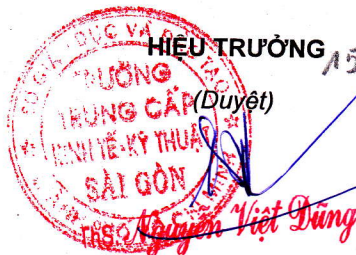 HIỆU TRƯỞNG
15
(Duyệt)
TRƯỜNG
TRUNG CẤP
KINH TẾ-KỸ THUẬT
SÀI GÒN
ThS. Nguyễn Việt Dũng